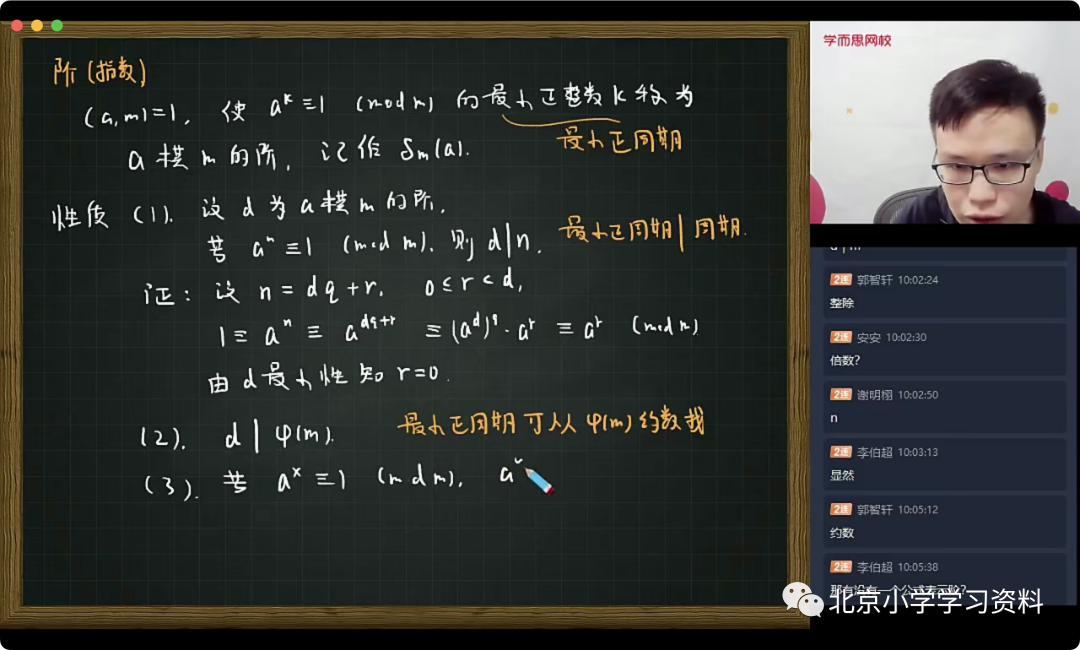 阶(指数)
(a,m)=1, 使 a^k≡1 (mod m) 的最小正整数k称为
a模m的阶, 记作 δm(a).
最小正周期
性质 (1). 设d为a模m的阶,
若 a^n≡1 (mod m), 则 d|n.
最小正周期|周期.
证: 设 n=dq+r, 0≤r<d,
1≡a^n≡a^{dq+r}≡(a^d)^q·a^r≡a^r (mod m)
由d最小性知 r=0.
(2). d|φ(m).
最小正周期可从φ(m)约数找
(3). 若 a^x≡1 (mod m), a
学而思网校
2连 郭智轩 10:02:24
整除
2连 安安 10:02:30
倍数?
2连 谢明栩 10:02:50
n
2连 李伯超 10:03:13
显然
2连 郭智轩 10:05:12
约数
2连 李伯超 10:05:38
那有没有一个公式表示阶?
北京小学学习资料